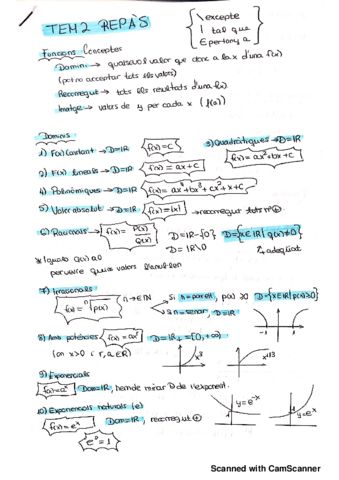 TEM 2 REPÀS
\ excepte
| tal que
∈ pertany a
Funcions Conceptes
Domini → qualsevol valor que donc a la x d'una f(x)
(pot no acceptar tots els valors)
Recorregut → tots els resultats d'una f(x)
Imatge → valors de y per cada x (f(x))
Dominis
1) F(x) Constant → D=IR f(x) = C
3) Quadràtiques → D=IR
f(x) = ax²+bx+C
2) F(x) lineals → D=IR f(x) = ax+C
4) Polinòmiques → D=IR f(x) = ax⁴+bx³+cx²+x+C
5) Valor absolut → D=IR f(x)=|x| → recorregut tots nº ⊕
6) Racionals → f(x) = P(x)/Q(x) D=IR-{0} D={x∈IR | q(x)≠0}
D=IR\0 ↳ adequat
* Iguala Q(x) a 0
per veure quins valors l'anul·len
7) Irracionals
f(x) = ⁿ√p(x) n → ∈ IN
Si n=parell, p(x) ≥0 D={x∈IR | p(x)≥0}
Si n=senar, D=IR
-1 1
8) Amb potències f(x)=axʳ D=IR+ =[0,+∞)
(on x>0 i r,a∈IR)
x³
x^1/3
9) Exponencials
f(x)=aˣ Dom=IR, hem de mirar D de l'exponent.
10) Exponencials naturals (e)
f(x)=eˣ Dom=IR, recorregut ⊕
e⁰=1
y=e⁻ˣ
y=eˣ
Scanned with CamScanner